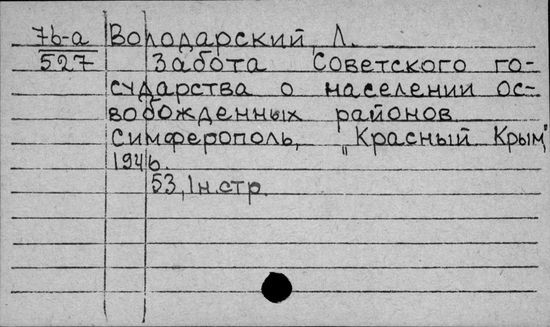 7б-а Володарский, Л.
527 Забота Советского го-
сударства о населении ос-
вобожденных районов
Симферополь, „Красный Крым",
1946.
53, 1н.стр.